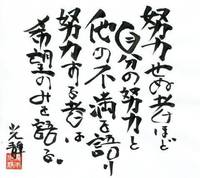 努力せぬ者ほど
自分の努力と
他の不満を語り
努力する者は
希望のみを語る。